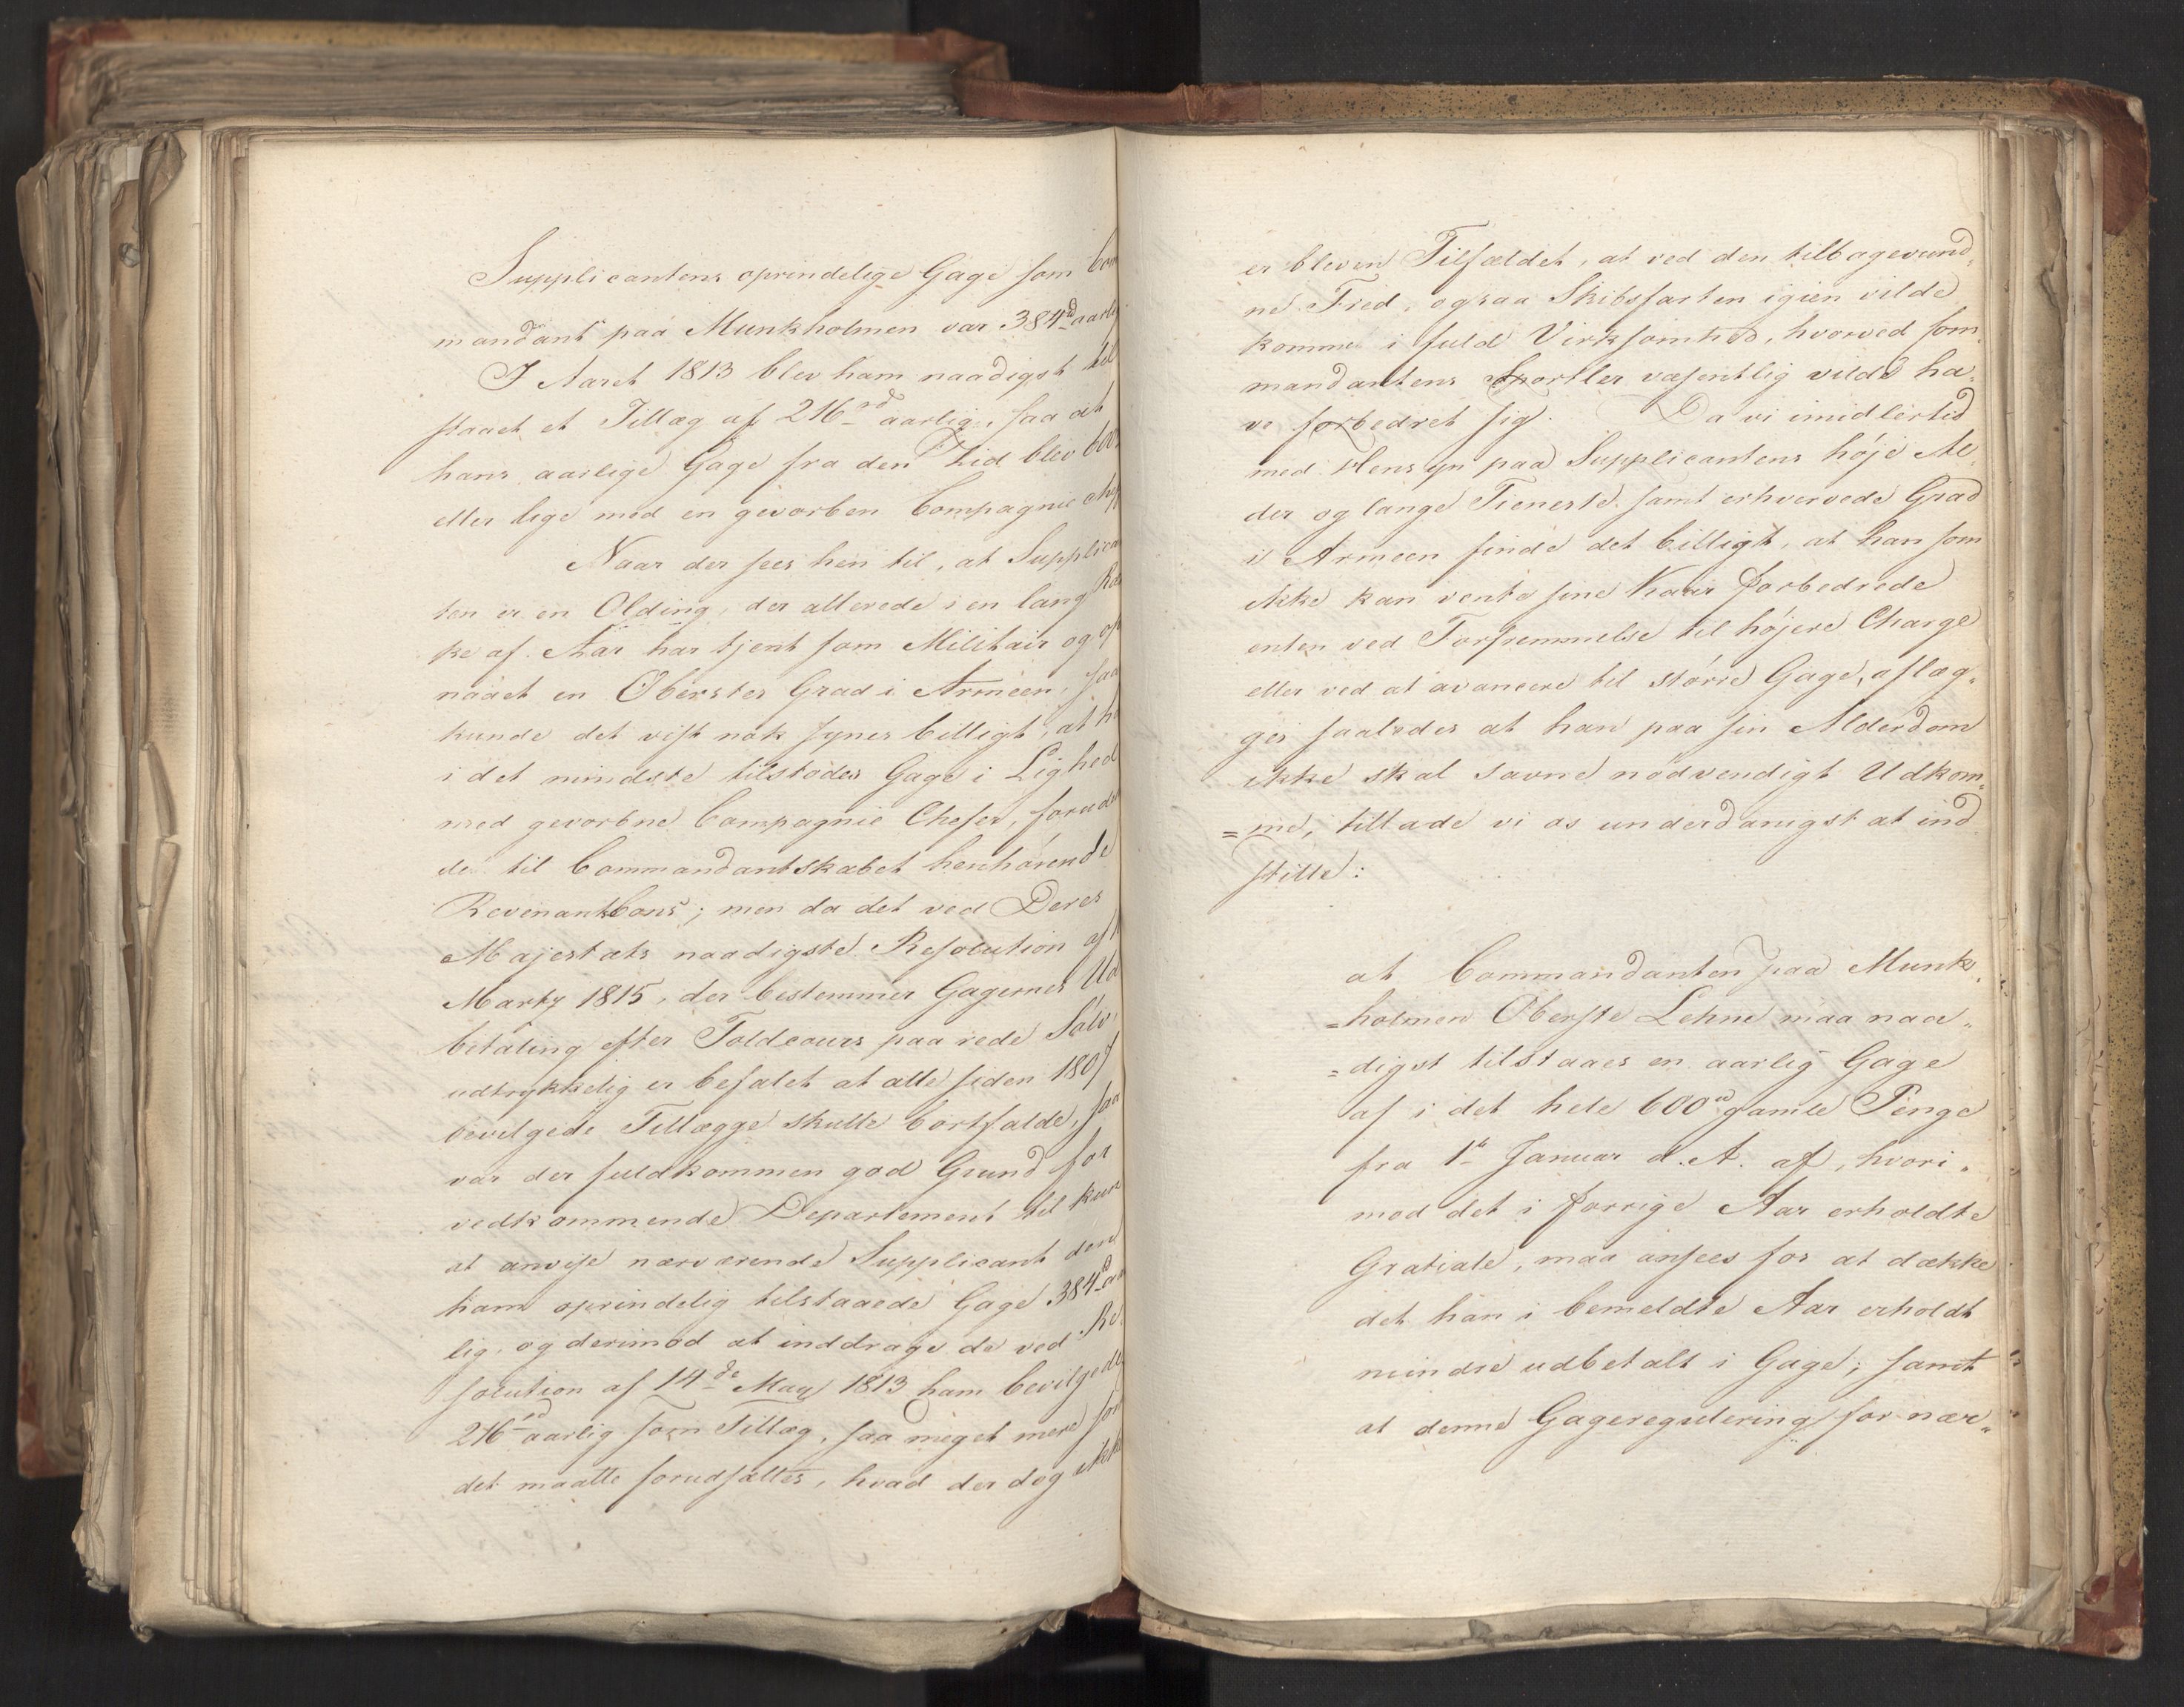 Supplicantens oprindelige Gage som Com
mandant paa Munkholmen var 384 rd aarli
I Aaret 1813 blev ham naadigst til
staaet et Tillæg af 216 rd aarlig, saa at
hans aarlige Gage fra den Tid blev 600
eller lige med en gevorben Compagnie Chef
Naar der sees hen til, at Supplican
ten er en Olding, der allerede i en lang Ræk
ke af Aar har tjent som Militair og op
naaet en Oberstes Grad i Armeen, saa
kunde det vist nok synes billigt, at h
i det mindste tilstødes Gage i Lighed
med gevorbne Compagnie Chefer, foruden
de til Commandantskabet henhørende
Revenants bons; men da det ved Deres
Majestæts naadigste Resolution af
Martz 1815, der bestemmer Gagernes Ud
betaling efter Toldcours paa rede Sølv,
udtrykkelig er befalet at alle siden 1807
bevilgede Tillægge skulle bortfalde, saa
var der fuldkommen god Grund for
vedkommende Departement til kun
at anvise nærværende Supplicant den
ham oprindelig tilstaaede Gage 384 rd aar
lig, og derimod at inddrage de ved Re
solution af 14de May 1813 ham bevilgede
216 rd aarlig som Tillæg, saa meget mere som
det maatte forudsættes, hvad der dog ikke
er bleven Tilfældet, at ved den tilbagevund,
ne Fred, ogsaa Skibsfarten igien vilde
komme i fuld Virksomhed, hvorved Kom,
mandantens Sportler væsentlig vilde ha,
ve forbedret sig. Da vi imidlertid
med Hensyn paa Supplicantens høje Al,
der og lange Tieneste, samt erhvervede Grad
i Armeen finde det billigt, at han som
ikke kan vente sine Kaar forbedrede
enten ved Forfremmelse til højere Charge
eller ved at avancere til større Gage, aflæg,
ges saaledes at han paa sin Alderdom
ikke skal savne nødvendigt Udkom,
=me, tillade vi os underdanigst at ind
stille:
at Commandanten paa Munk,
=holmen Oberste Lehne maa naa,
=digst tilstaaes en aarlig Gage
af i det hele 600 rd gamle Penge
fra 1te Januar d. A. af, hvori,
mod det i forrige Aar erholdte
Gratiale, maa ansees for at dække
det han i bemeldte Aar erholdt
mindre udbetalt i Gage; samt
at denne Gageregulering for nær,